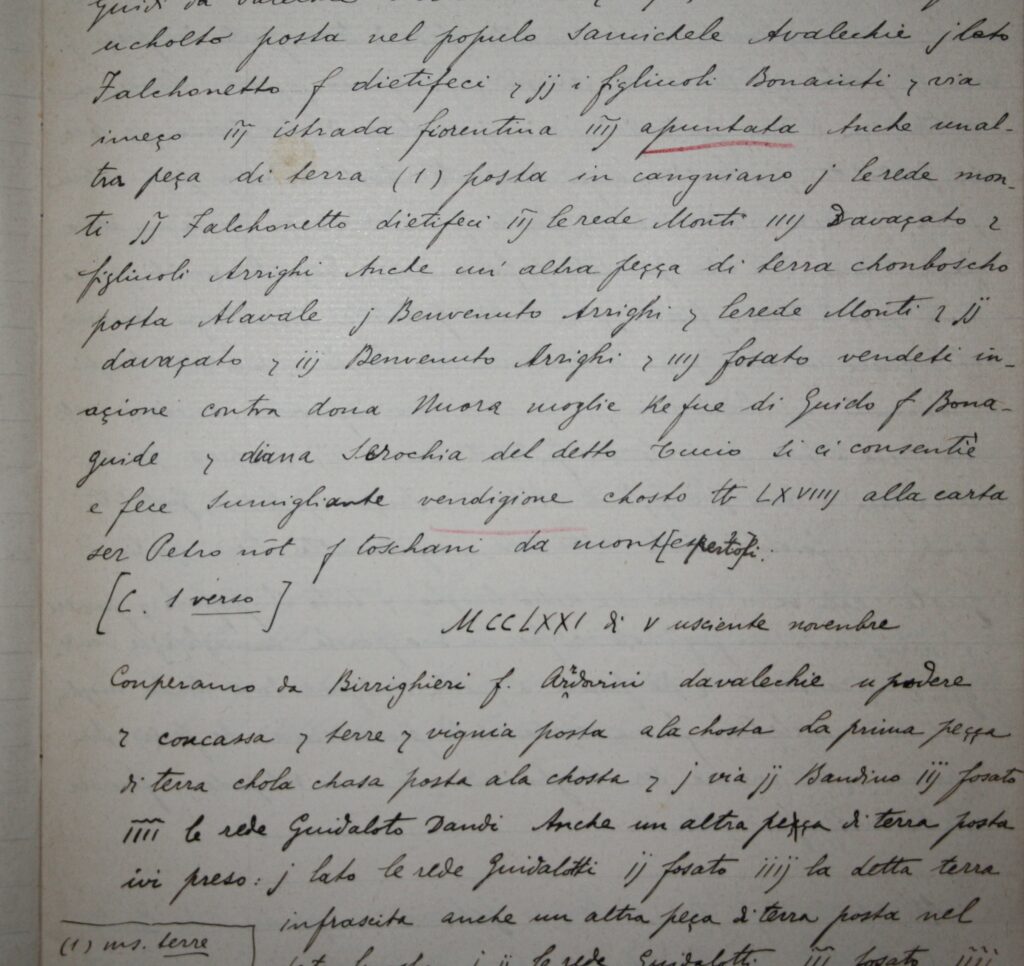 ucholto posta nel populo Samichele Avalechie j lato
Falchonetto f dietifeci 7 jj i figliuoli Bonaiuti 7 via
imeço iij istrada fiorentina iiij apuntata Anche unal-
tra peça di terra (1) posta in canguiano j lerede mon-
ti jj Falchonetto dietifeci iij lerede Monti iiij Davaçato 7
figliuoli Arrighi Anche un' altra peçça di terra chonboscho
posta Alavale j Benvenuto Arrighi 7 lerede Monti 7 jj
davaçato 7 iij Benvenuto Arrighi 7 iiij fosato vendeti in-
açione contra dona Nuora moglie ke fue di Guido f Bona-
guide 7 diana Serochia del detto Cucio Si ci consentiè
e fece sumigliante vendigione chosto tt LXVIIIJ alla carta
ser Petro not f toschani da mont[espertoli].
[C. 1 verso]
MCCLXXI di V usciente novenbre
Conperamo da Birrighieri f. Ardovini davalechie u podere
7 concassa 7 terre 7 vignia posta alachosta La prima peçça
di terra chola chasa posta ala chosta 7 j via jj Bandino iij fosato
iiii le rede Guidaloto Dandi Anche un altra peçça di terra posta
ivi preso: j lato le rede Guidalotti ij fosato iiij la detta terra
infrascita anche un altra peça di terra posta nel
(1) ms. terre